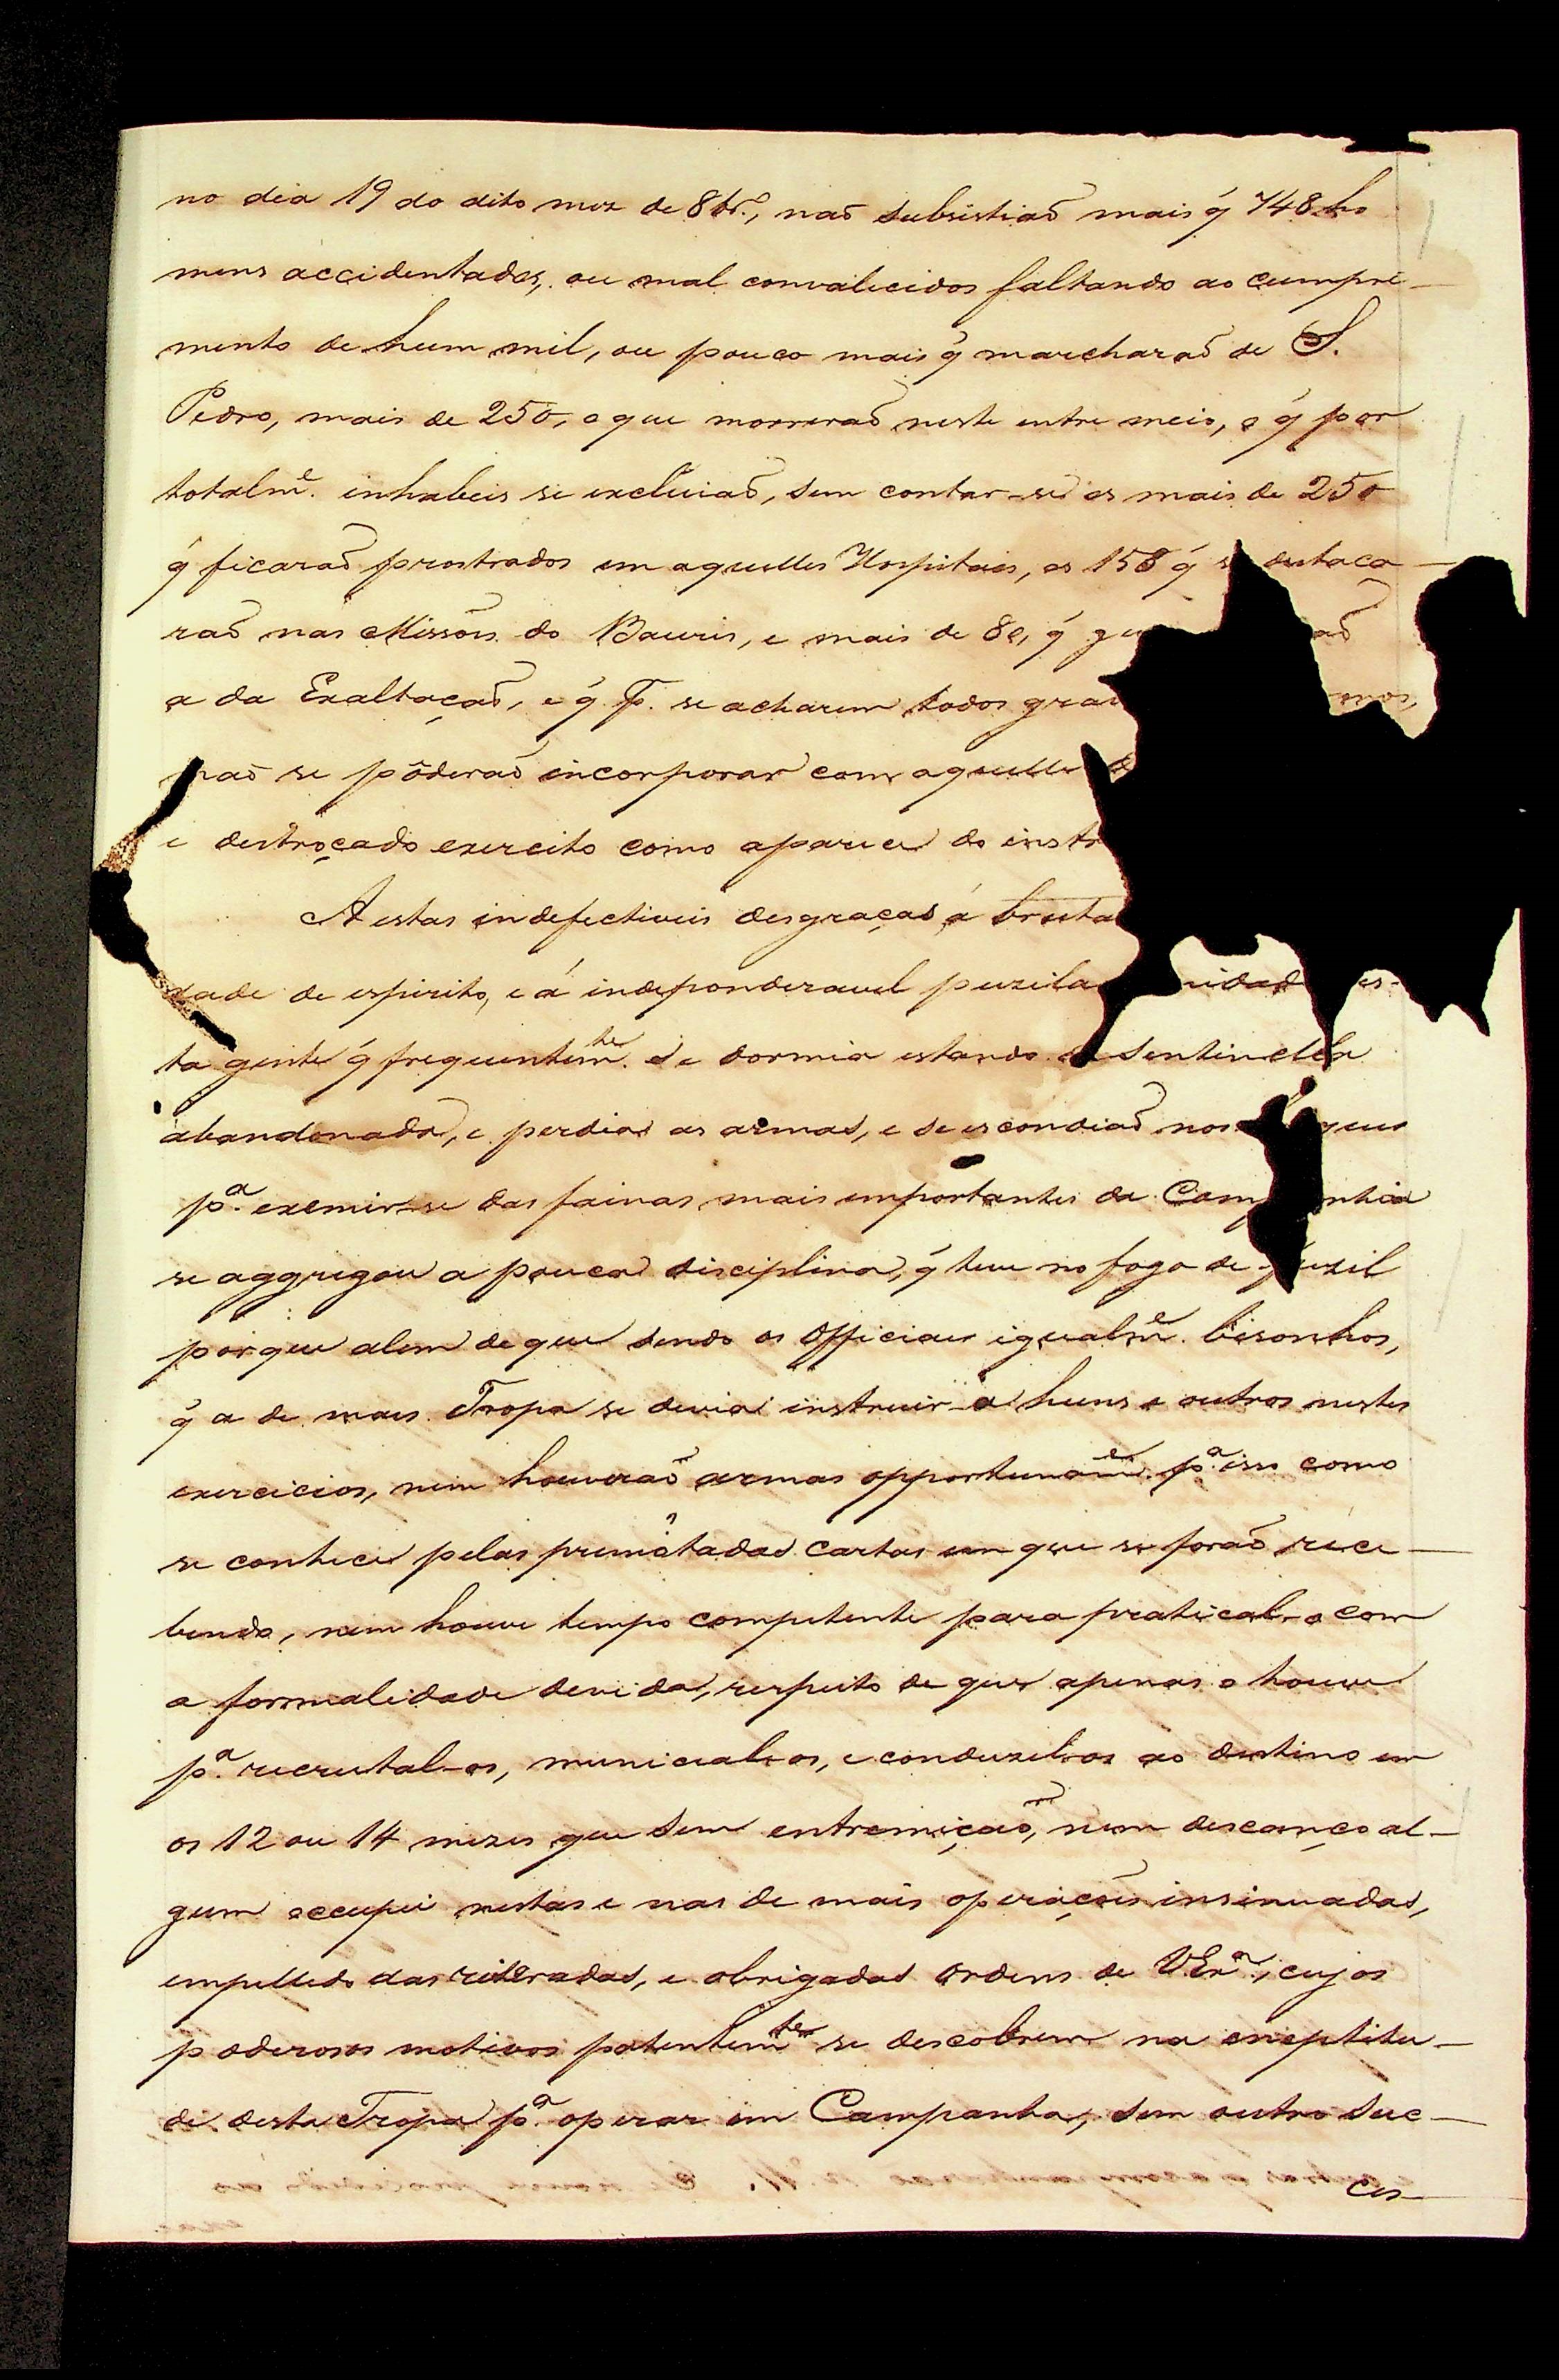 no dia 19 do dito mez de 8br.º, naõ subsistiaõ mais q̃ 748 ho
mens accidentados, ou mal convalecidos faltando ao cumpri-
mento de hum mil, ou pouco mais q̃ marcharaõ de S.
Pedro, mais de 250, o que morreraõ neste entre meio, e q̃ por
totalm.e inhabeis se excluiaõ, sem contar-se os mais de 250
q̃ ficaraõ prostrados em aquelles Hospitais, os 150 q̃ destaca-
raõ nas Missões do Bauris, e mais de 80, q̃
a da Exaltaçaõ, e q̃ p.r se acharem todos
naõ se pôderaõ incorporar com aquelle
e destroçado exercito como aparece do
A estas indefectiveis desgraças á
dade de espirito, e á indeponderavel es-
ta gente q̃ frequentem.te se dormia estando de Sentinella
abandonada, e perdia as armas, e se escondiaõ nos
p.a exemir-se das fainas mais importantes da
se aggregou a pouca disciplina, q̃ teve no fogo de fuzil
porque alem de que sendo os Officiaes igualm.e bisonhos,
q̃ a de mais Tropa se devia instruir a huns e outros nestes
exercicios, nem houveraõ armas opportunam.e p.a isso como
se conhece pelas premôtadas cartas em que se foraõ rece-
bendo, nem houve tempo competente para pratical-o com
a formalidade devida, respeito de que apenas o houve
p.a recrutal-os, municial-os, e conduzil-os ao destino em
os 12 ou 14 mezes que sem entremiçaõ, nem descanço al-
gum occupei nestas e nas de mais operações insinuadas,
empellido das reiteradas, e obrigadas ordens de VEx.a, cujos
poderosos motivos patentem.te se descobrem na eneptitu-
de desta Tropa p.a operar em Campanha, sem outro suc-
ces